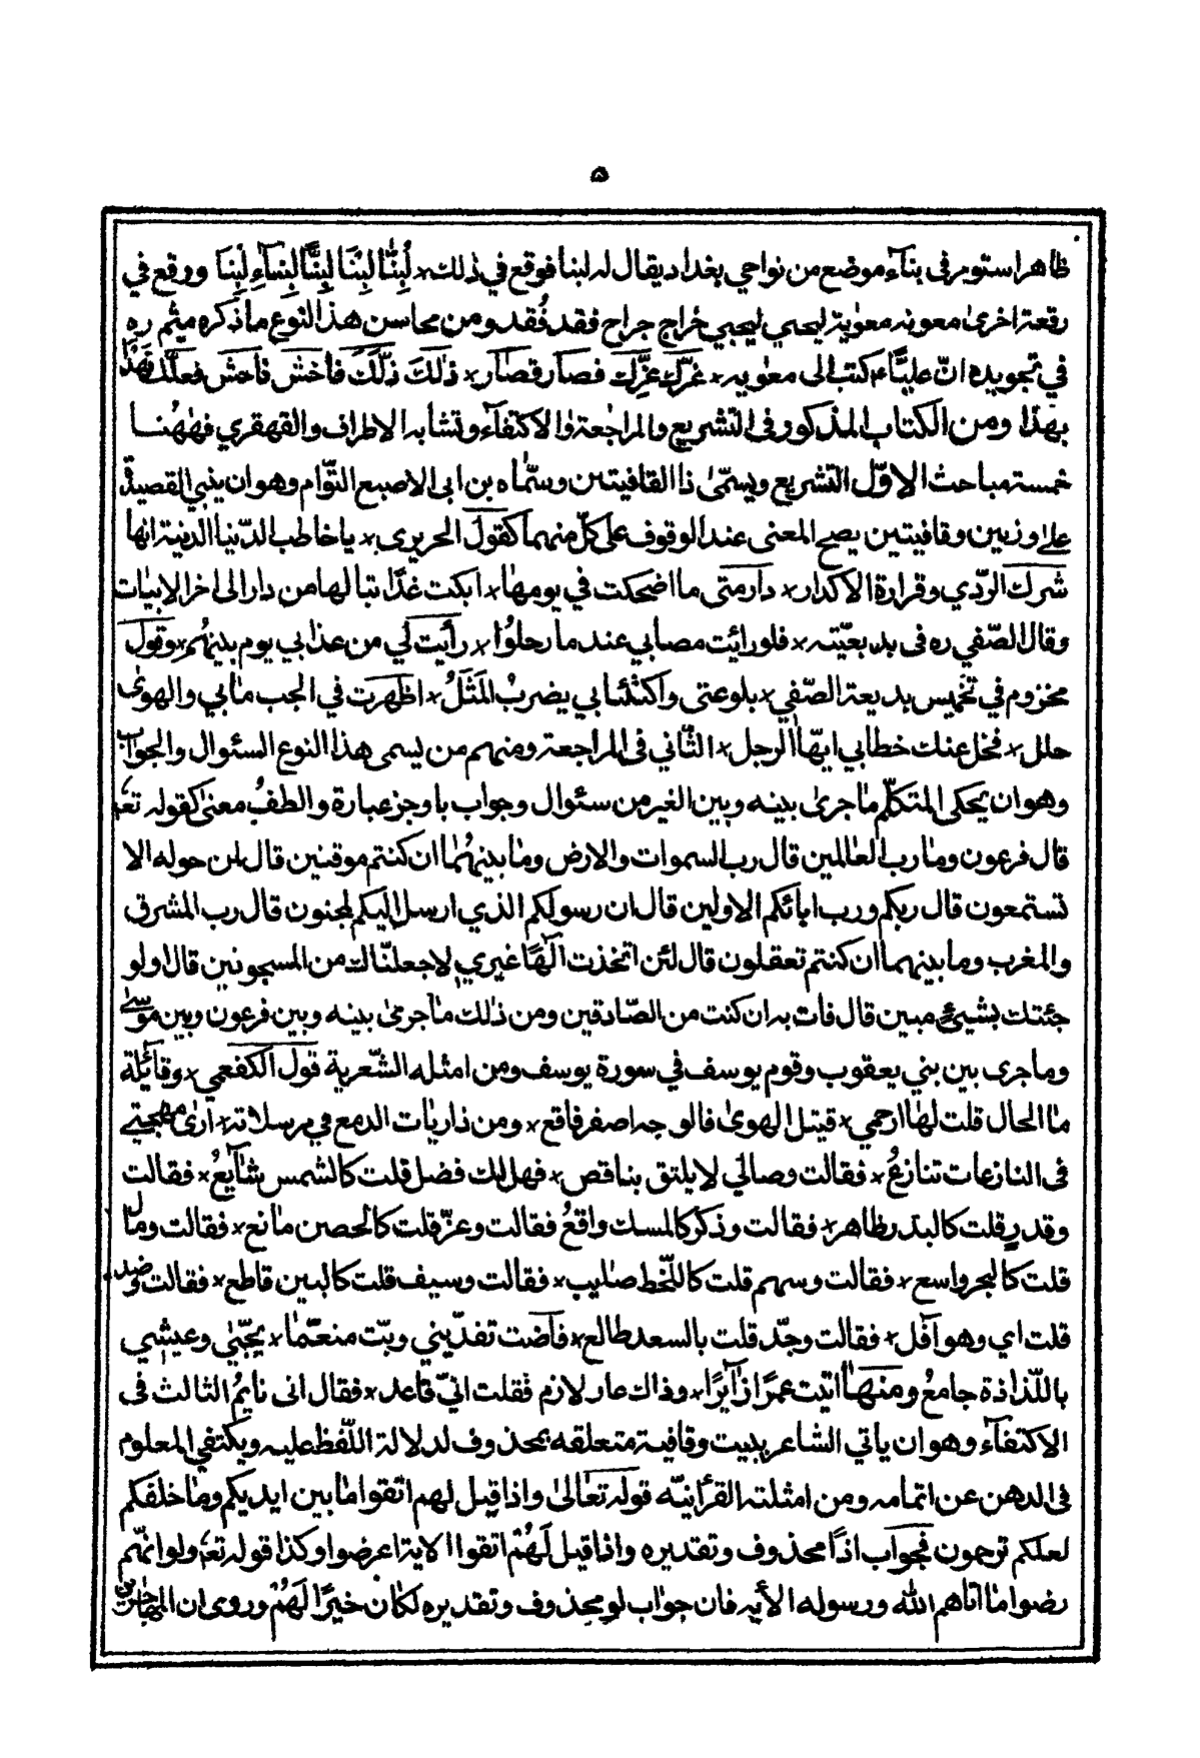 ۵
ظاهرا ستومر فى بنآء موضع من نواحي بغداد يقال له لبنا فوقع في ذلك × لُبِنَّا لِبْنَا لِبِنًّا لِبِنٰآءِ لِبْنَا ووقع في
رقعة اخرىٰ معونه معوٰية ليحيي ليجبي خراج جراح فقد فُقد ومن محاسن هذا النوع ما ذكره ميثم ره
في تجويده انّ عليّاً ء كتب الى معٰويه × غرّك عزّك فصار قصار × ذٰلك ذلّك فاخش فاحش فعلّك تهدٰا
بهٰذا ومن الكتاب المذكور فى التشريع والمراجعة والاكتفآء وتشابه الاطراف والقهقري فهٰهُنا
خمسة مباحث الاوّل التشريع ويسمّىٰ ذا القافيتين وسمّاه بن ابى الاصبع التوّام وهو ان يبني القصيدة
علےٰ وزنين وقافيتين يصح المعنى عند الوقوف على كلّ منهما كقول الحريرى × يا خاطب الدّنيا الدنية انها
شرك الرّدي وقرارة الاكدار × دار متى ما اضحكت في يومهٰا × ابكت غدًا تبا لها من دار الى اخر الابيٰات
وقال الصّفي ره فى بديعيّته × فلو رائيت مصابي عند ما رحلوُا × رأيت لي من عذابي يوم بينهُم × وقول
مخزوم في تخميس بديعة الصّفي × بلوعتى واكتئابي يضربُ المَثَلُ × اظهرت في الحب مٰا بي والهوىٰ
حلل × فخل عنك خطابي ايّها الرجل × الثّاني فى المراجعة ومنهم من يسمى هذا النوع السئوال والجوٰاب
وهو ان يحكى المتكلّم مٰا جرىٰ بينه وبين الغير من سئوال وجواب باوجز عبارة والطفُ معنىً كقوله تعٰه
قال فرعون ومٰا رب العٰالمين قال رب السموات والارض ومٰا بينهُمٰا ان كنتم موقنين قال لمن حوله الا
تستمعون قال ربكم ورب ابائكم الاولين قال ان رسولكم الذي ارسل اليكم لمجنون قال رب المشرق
والمغرب وما بينهما ان كنتم تعقلون قال لئن اتّخذت الٰهًا غيري لاجعلنّاك من المسجونين قال اولو
جئتك بشيئ مبين قال فات به ان كنت من الصّادقين ومن ذٰلك مٰا جرىٰ بينه وبين فرعون وبين موسىٰ
وما جرى بين بني يعقوب وقوم يوسف في سورة يوسف ومن امثله الشّعرية قول الكفعمي × وقآئلة
مٰا الحال قلت لهٰا ارحمي × قيتل الهوىٰ فالوجه اصفر فاقع × ومن ذاريٰات الدمع في مرسلاته × ارىٰ مهجتي
فى النازعات تنازعُ × فقالت وصالي لا يلتق بناقص × فهل لك فضل قلت كالشمس شٰايعُ × فقالت
وقدرٍ قلت كالبدر ظاهر × فقالت وذكر كالمسك واقعُ فقالت وعزّ قلت كالحصن مٰانع × فقالت ومٰال
قلت كالبحر واسع × فقالت وسهم قلت كاللّحظ صٰايب × فقالت وسيف قلت كالبين قاطع × فقالت وضد
قلت اي وهو آفل × فقالت وجدّ قلت بالسعد طالع × فآضت تفدّيني وبتّ منعّمٰا × يجبّنٰي وعيشي
باللّذاذة جامعُ ومنهٰا اتيت عمرًا زآيرًا × وذاك عار لازم فقلت انيّ قاعد × فقال انى نايمُ الثالث فى
الاكتفآء وهو ان ياتي الشاعر ببيت وقافية متعلقه بمحذوف لدلالة اللّفظ عليه ويكتفي المعلوم
فى الدهن عن اتمامه ومن امثلته القرأنيّه قوله تعالىٰ واذا قيل لهم اتقوا مٰا بين ايديكم ومٰا خلفكم
لعلكم ترحمون فجوٰاب اذًا محذوف وتقديره واذا قيل لَهُمْ اتقوا الاية اعرضوا وكذا قوله تعٰه ولو انهّم
رضوا مٰا اتاهم الله ورسوله الأيه فان جوٰاب لو محذوف وتقديره لكٰان خيرًا لَهُمْ وروى ان المهٰاجرين